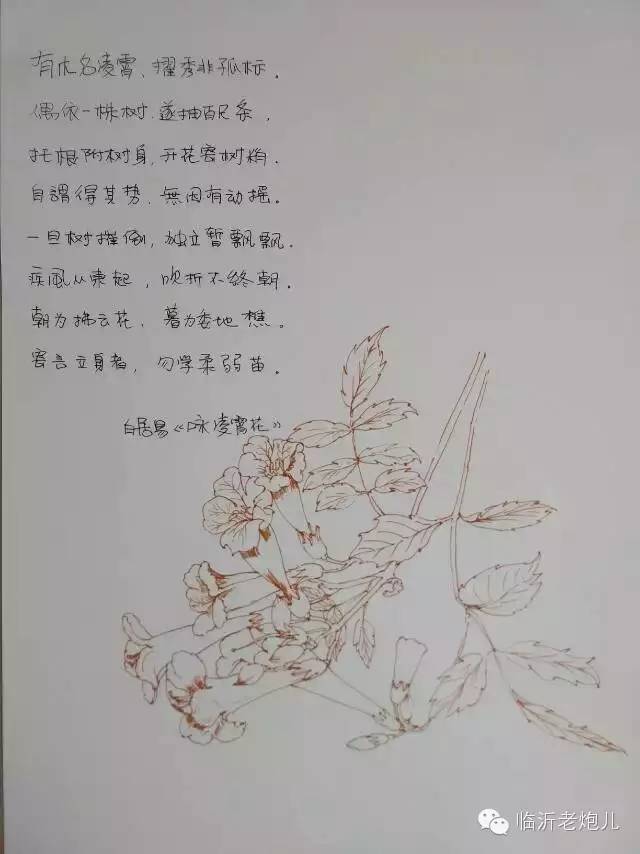 有木名凌霄、擢秀非孤标.
偶依一株树.遂抽百尺条,
托根附树身,开花寄树梢.
自謂得其势、無因有动摇。
一旦树摧倒,独立暂飘飘.
疾風从東起,吹折不終朝.
朝为拂云花、暮为委地樵。
寄言立身者,勿学柔弱苗.
白居易《咏凌霄花》
临沂老炮儿